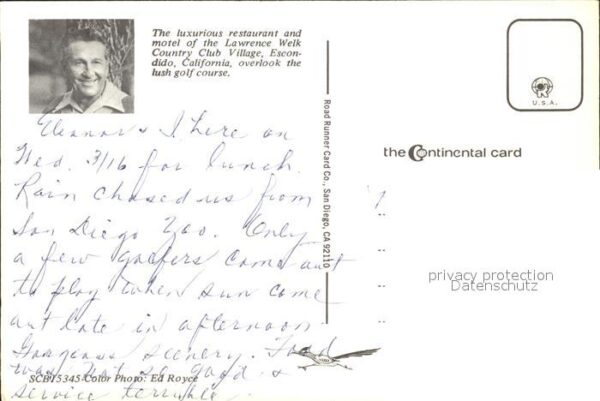 The luxurious restaurant and
motel of the Lawrence Welk
Country Club Village, Escon-
dido, California, overlook the
lush golf course.
Eleanor & I here on
Wed. 3/16 for lunch.
Rain chased us from
San Diego Zoo. Only
a few golfers come out
to play when sun come
out late in afternoon
Gorgeous scenery. Food
was not so good &
service terrible.
SCB15345 Color Photo: Ed Royce
Road Runner Card Co., San Diego, CA 92110
U.S.A.
the Continental card
privacy protection
Datenschutz